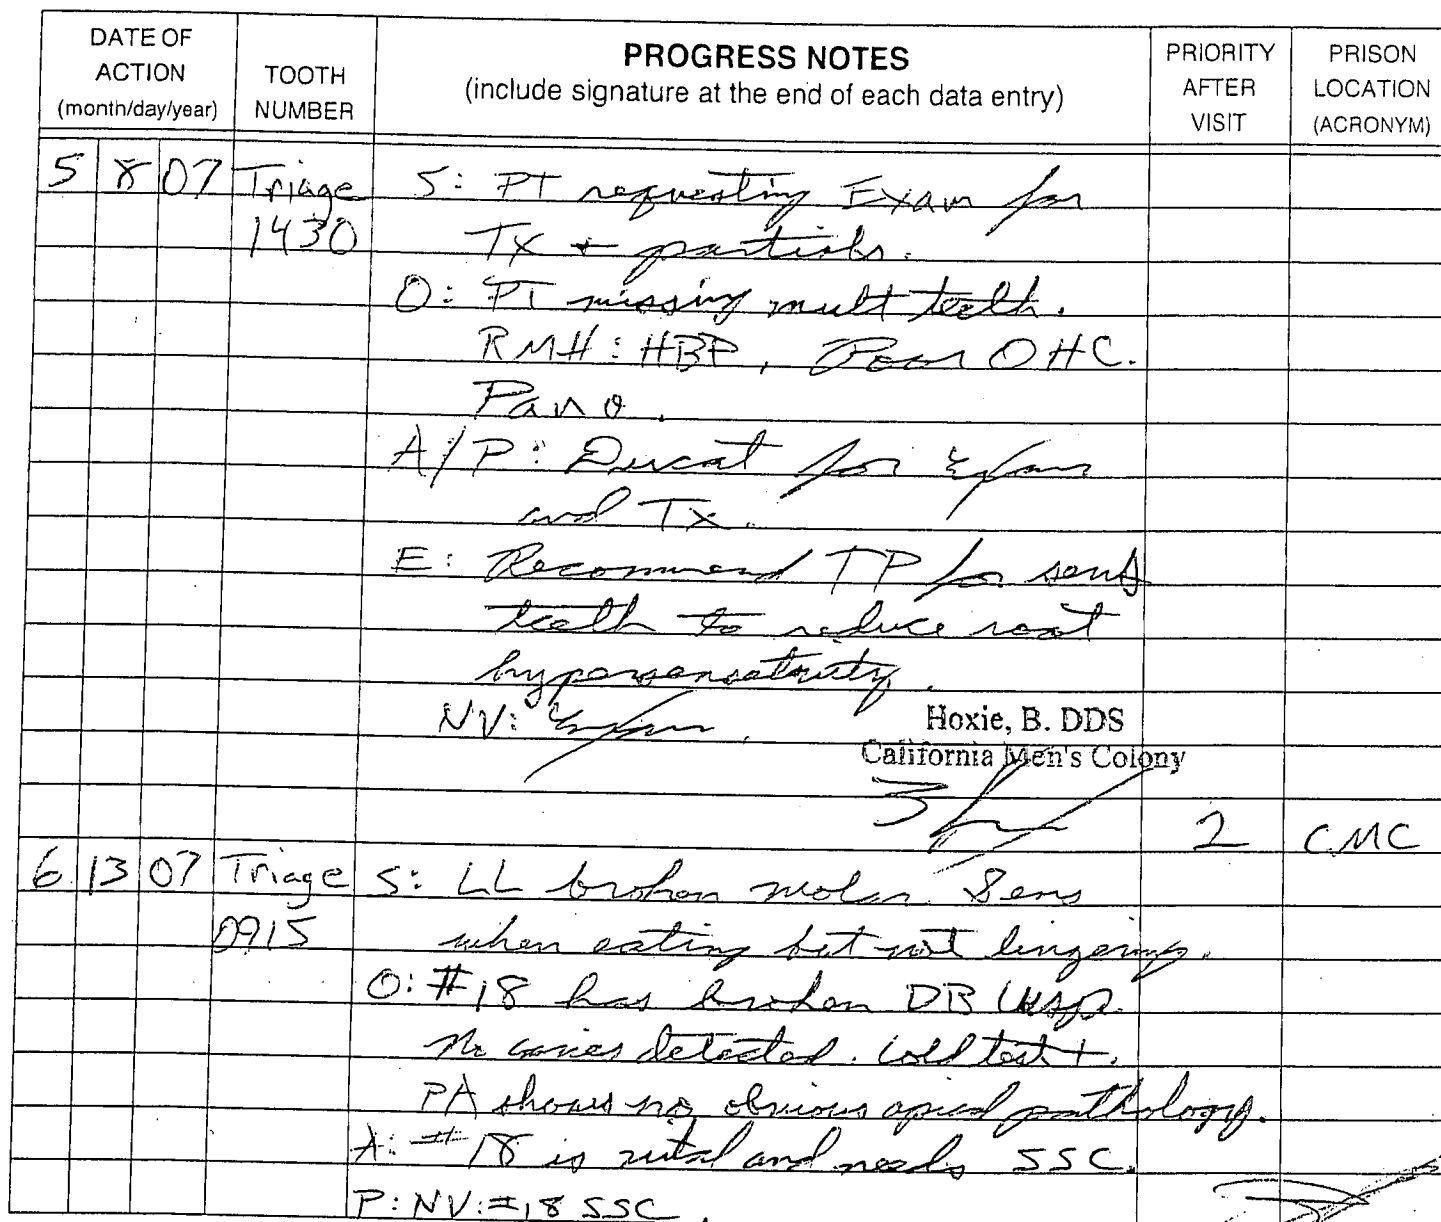 DATE OF ACTION (month/day/year)
TOOTH NUMBER
PROGRESS NOTES
(include signature at the end of each data entry)
PRIORITY AFTER VISIT
PRISON LOCATION (ACRONYM)
5 8 07 Triage S: PT requesting Exam for
1430 TX + partials.
O: PT missing mult teeth.
RMH: HBP, Poor OHC.
Pano.
A/P: Ducat for Exam
and Tx.
E: Recommend TP for sens
teeth to reduce root
hypersensativity.
NV: Exam.
Hoxie, B. DDS
California Men's Colony
2 CMC
6 13 07 Triage S: LL broken molar. Sens
0915 when eating but not lingering.
O: #18 has broken DB cusp.
No caries detected. Cold test +.
PA shows no obvious apical pathology.
A: #18 is vital and needs SSC.
P: NV: #18 SSC.